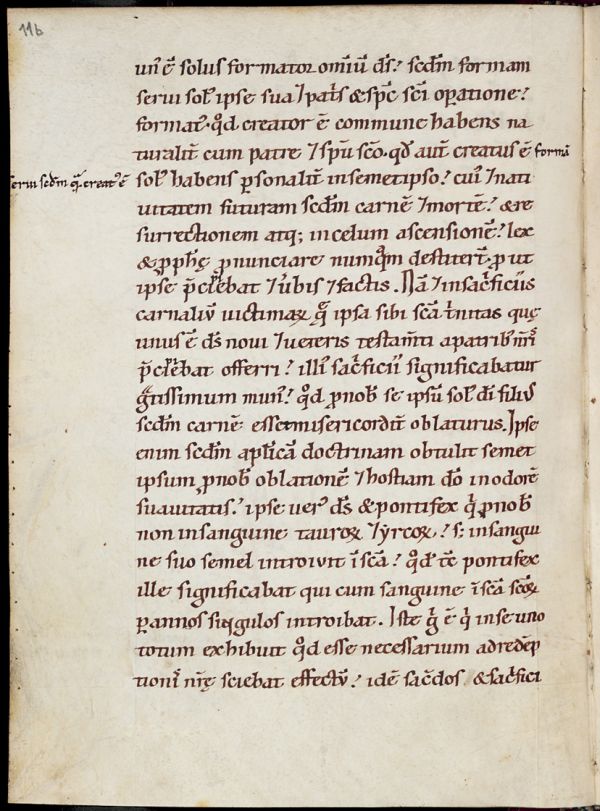 11b
un' ē solus formator omiū d̄s. scdm̄ formam
serui sol' ipse sua ⁊ pat̄s & sp̄c sc̄i oꝑatione.
format. qd̄ creator ē commune habens na
turalit̄ cum patre ⁊ sp̄u sc̄o. qd̄ aut̄ creatus ē formā
serui scdm̄ q̄ creat' ē
sol' habens ꝑsonalit̄ in semetipso. cui' ⁊ nati
uitatem futuram scdm̄ carnē ⁊ mortē. & re
surrectionem atq; in celum ascensionē. lex
& ꝓph̄ę ꝓnunciare numqm̄ destiter̄t. ꝓut
ipse p̄cip̄ebat ⁊ u̓bis ⁊ factis. Nā ⁊ in sac̓ficiis
carnaliū uictimaꝝ q̄s ipsa sibi sc̄a t̓nitas quę
unus ē d̄s noui ⁊ ueteris testam̄ti a patrib; nr̄i
p̄cip̄ebat offerri. illi' sac̓ficiū significabatur
g̓tissimum mun'. qd̄ ꝓ nob' se ipsū sol' d̄i filiꝰ
scdm̄ carnē esset misericordit̄ oblaturus. Ipse
enim scdm̄ ap̄licā doctrinam obtulit semet
ipsum ꝓ nob' oblationē ⁊ hostiam d̄o in odorē
suauitatis. ipse uer' d̄s & pontifex q̓ ꝓ nob'
non in sanguine tauroꝝ ⁊ yrcoꝝ. s; in sangui
ne suo semel introiuit ī sc̄a. qd̄ t̄c pontifex
ille significabat qui cum sanguine ī sc̄a sc̄oꝝ
ꝑ annos singulos introibat. Iste g̓ ē q̓ in se uno
totum exhibuit qd̄ esse necessarium ad redēp
tioni' nr̄ę sciebat effectū. idē sac̓dos & sac̓fici